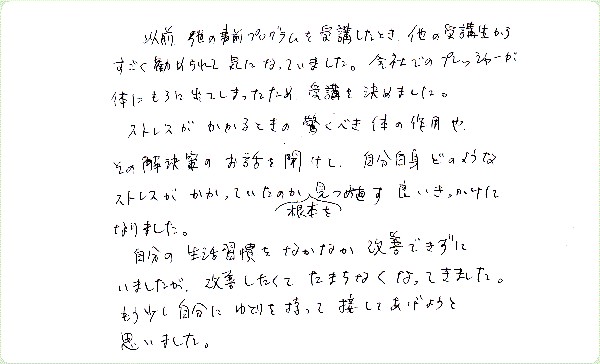 以前 他の事前プログラムを受講したとき、他の受講生から
すごく勧められて気になっていました。会社でのプレッシャーが
体にもろに出てしまったため、受講を決めました。
ストレスがかかるときの驚くべき体の作用や、
その解決案のお話を聞けし、自分自身どのような
ストレスがかかっていたのか、見つめ直す良いきっかけに
根本を
なりました。
自分の生活習慣をなかなか改善できずに
いましたが、改善したくてたまらなくなってきました。
もう少し自分にゆとりを持って接してあげようと
思いました。